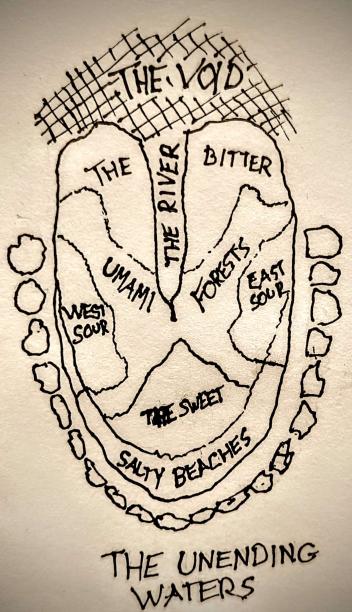 THE VOID
THE BITTER
THE RIVER
UMAMI FORESTS
WEST
SOUR
EAST
SOUR
THE SWEET
SALTY BEACHES
THE UNENDING
WATERS